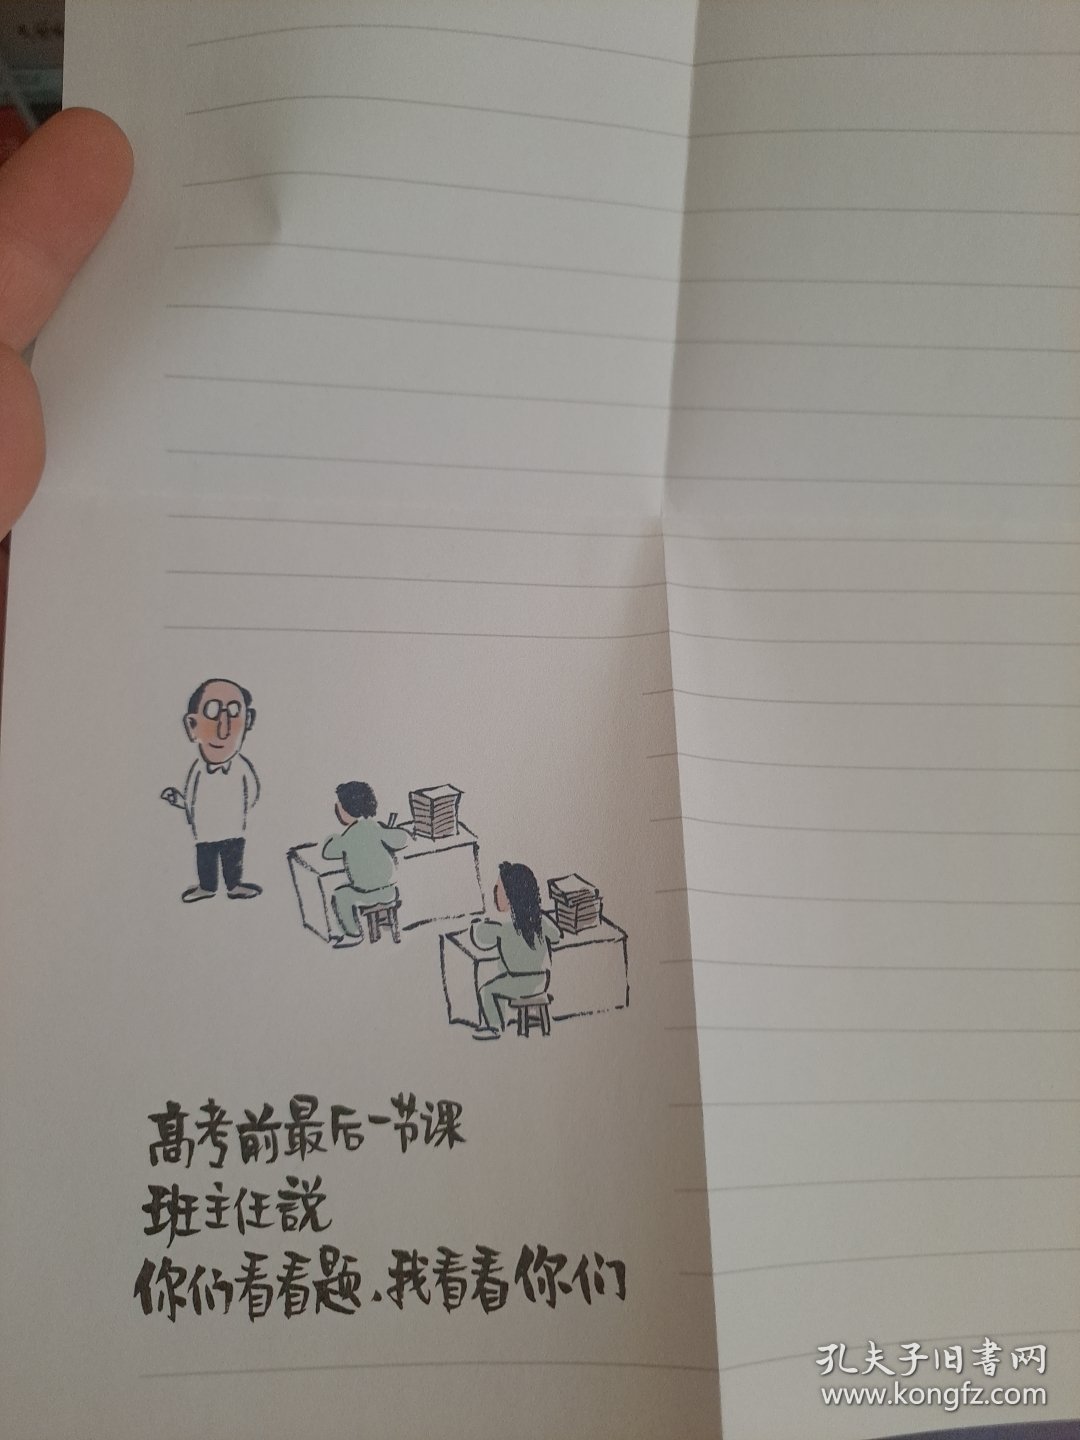 高考前最后一节课
班主任説
你们看看题.我看看你们
孔夫子旧書网
www.kongfz.com